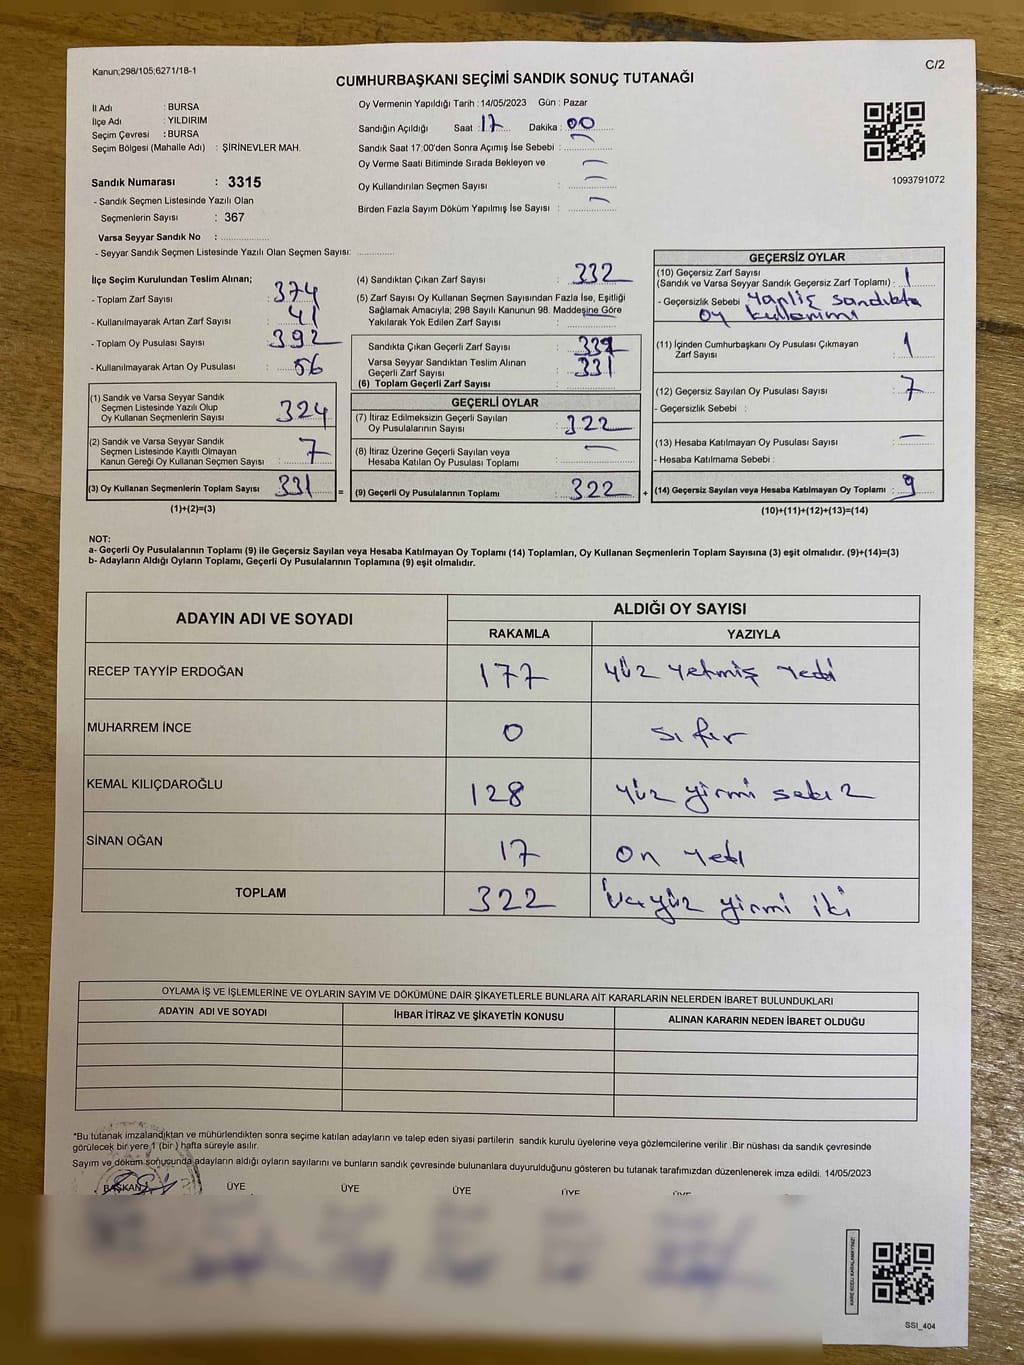 Kanun;298/105;6271/18-1
C/2
CUMHURBAŞKANI SEÇİMİ SANDIK SONUÇ TUTANAĞI
İl Adı : BURSA
İlçe Adı : YILDIRIM
Seçim Çevresi : BURSA
Seçim Bölgesi (Mahalle Adı) : ŞİRİNEVLER MAH.
Sandık Numarası : 3315
- Sandık Seçmen Listesinde Yazılı Olan
Seçmenlerin Sayısı : 367
Varsa Seyyar Sandık No :
- Seyyar Sandık Seçmen Listesinde Yazılı Olan Seçmen Sayısı:
Oy Vermenin Yapıldığı Tarih : 14/05/2023 Gün : Pazar
Sandığın Açıldığı Saat : 17 Dakika : 00
Sandık Saat 17:00'den Sonra Açımış İse Sebebi : —
Oy Verme Saati Bitiminde Sırada Bekleyen ve —
Oy Kullandırılan Seçmen Sayısı : —
Birden Fazla Sayım Döküm Yapılmış İse Sayısı : —
1093791072
İlçe Seçim Kurulundan Teslim Alınan;
- Toplam Zarf Sayısı : 374
- Kullanılmayarak Artan Zarf Sayısı : 41
- Toplam Oy Pusulası Sayısı : 392
- Kullanılmayarak Artan Oy Pusulası : 56
(1) Sandık ve Varsa Seyyar Sandık
Seçmen Listesinde Yazılı Olup
Oy Kullanan Seçmenlerin Sayısı : 324
(2) Sandık ve Varsa Seyyar Sandık
Seçmen Listesinde Kayıtlı Olmayan
Kanun Gereği Oy Kullanan Seçmen Sayısı : 7
(3) Oy Kullanan Seçmenlerin Toplam Sayısı : 331
(1)+(2)=(3)
(4) Sandıktan Çıkan Zarf Sayısı : 332
(5) Zarf Sayısı Oy Kullanan Seçmen Sayısından Fazla İse, Eşitliği
Sağlamak Amacıyla; 298 Sayılı Kanunun 98. Maddesine Göre
Yakılarak Yok Edilen Zarf Sayısı : —
Sandıkta Çıkan Geçerli Zarf Sayısı :
Varsa Seyyar Sandıktan Teslim Alınan
Geçerli Zarf Sayısı : 331
(6) Toplam Geçerli Zarf Sayısı :
GEÇERLİ OYLAR
(7) İtiraz Edilmeksizin Geçerli Sayılan
Oy Pusulalarının Sayısı : 322
(8) İtiraz Üzerine Geçerli Sayılan veya
Hesaba Katılan Oy Pusulası Toplamı : —
= (9) Geçerli Oy Pusulalarının Toplamı : 322
GEÇERSİZ OYLAR
(10) Geçersiz Zarf Sayısı
(Sandık ve Varsa Seyyar Sandık Geçersiz Zarf Toplamı) : 1
- Geçersizlik Sebebi : Yanlış sandıkta
oy kullanımı
(11) İçinden Cumhurbaşkanı Oy Pusulası Çıkmayan
Zarf Sayısı : 1
(12) Geçersiz Sayılan Oy Pusulası Sayısı : 7
- Geçersizlik Sebebi :
(13) Hesaba Katılmayan Oy Pusulası Sayısı : —
- Hesaba Katılmama Sebebi :
+ (14) Geçersiz Sayılan veya Hesaba Katılmayan Oy Toplamı : 9
(10)+(11)+(12)+(13)=(14)
NOT:
a- Geçerli Oy Pusulalarının Toplamı (9) ile Geçersiz Sayılan veya Hesaba Katılmayan Oy Toplamı (14) Toplamları, Oy Kullanan Seçmenlerin Toplam Sayısına (3) eşit olmalıdır. (9)+(14)=(3)
b- Adayların Aldığı Oyların Toplamı, Geçerli Oy Pusulalarının Toplamına (9) eşit olmalıdır.
ADAYIN ADI VE SOYADI
ALDIĞI OY SAYISI
RAKAMLA YAZIYLA
RECEP TAYYİP ERDOĞAN 177 yüz yetmiş yedi
MUHARREM İNCE 0 sıfır
KEMAL KILIÇDAROĞLU 128 yüz yirmi sekiz
SİNAN OĞAN 17 on yedi
TOPLAM 322 üçyüz yirmi iki
OYLAMA İŞ VE İŞLEMLERİNE VE OYLARIN SAYIM VE DÖKÜMÜNE DAİR ŞİKAYETLERLE BUNLARA AİT KARARLARIN NELERDEN İBARET BULUNDUKLARI
ADAYIN ADI VE SOYADI İHBAR İTİRAZ VE ŞİKAYETİN KONUSU ALINAN KARARIN NEDEN İBARET OLDUĞU
*Bu tutanak imzalandıktan ve mühürlendikten sonra seçime katılan adayların ve talep eden siyasi partilerin sandık kurulu üyelerine veya gözlemcilerine verilir .Bir nüshası da sandık çevresinde
görülecek bir yere 1 (bir ) hafta süreyle asılır.
Sayım ve döküm sonusunda adayların aldığı oyların sayılarını ve bunların sandık çevresinde bulunanlara duyurulduğunu gösteren bu tutanak tarafımızdan düzenlenerek imza edildi. 14/05/2023
BAŞKAN ÜYE ÜYE ÜYE ÜYE ÜYE
KARE KODU KARALAMAYINIZ!
SSI_404